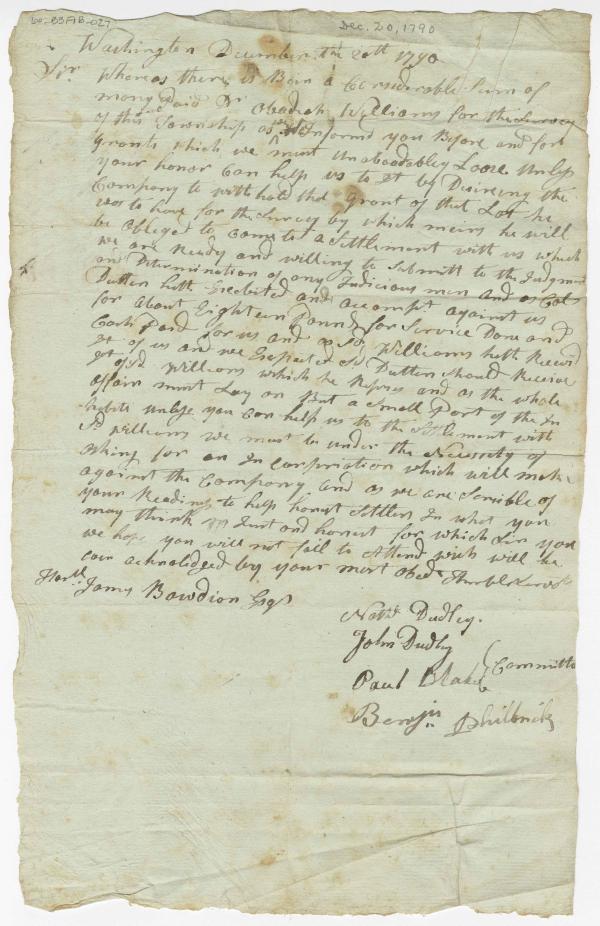 60-B3F1B-027
Dec. 20, 1790
Washington December the 20th 1790
Sir Whereas there is Bean a Considerable Sum of
mony Paid Dr Obadiah Williams for the Survey
of this Township as we Informed you Before and for
grants which we must Unaboadabley Loose Unless
your honor Can help us to It by Desireing the
Company to withhold the grant of that Lot he
was to have for the Survey by which meins he will
be Obleged to Come to a Settlement with us which
we are Ready and willing to Submitt to the Judgment
an Determination of any Judicious men and as Col
Dutten heth Exebited and accompt against us
for About Eighteen Pound for Service Done and
Cash Paid for us and as Sd Williams heth Receivd
It of us and we Expected Sd Dutten Should Receive
It of Sd Williams which he Refuses and as the whole
afair must Lay on But a Small Part of the In
habits unless you Can help us to the Settlement with
Sd Williams we must be under the Necessity of
asking for an In Corpriation which will make
against the Company and as we are Sensible of
your Readings to help honest Settlers In what you
may think Just and honest for which Sir you
we hope you will not fail to Attend wich will be
ever acknoledged by your most Obedt Humble Servts
Honble James Bowdion Esqr
Nathl Dudley
John Dudley
Paul Blake Committe
Benjin Philbrick